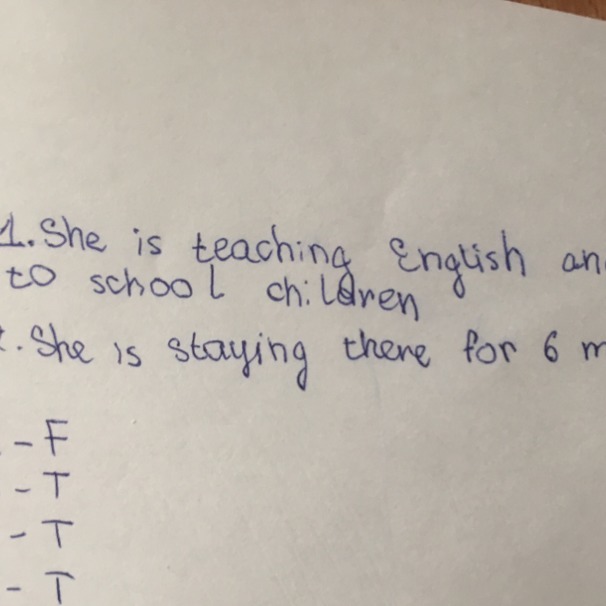 1. She is teaching English an
to school children
. She is staying there for 6 m
- F
- T
- T
- T